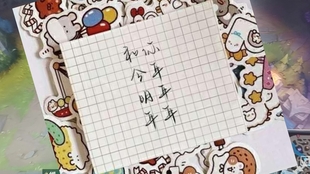 和你
今年
明年
年年